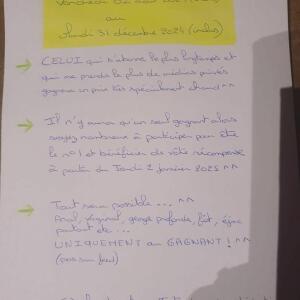 au
31 décembre 2024 (inclus)
CELUI qui s'abonne le plus longtemps et
qui me prendra le plus de médias privés
gagnera un prix très spécialement chaud ^^
Il n'y aura qu'un seul gagnant alors
soyez nombreux à participer pour être
le n°1 et bénéficier de votre récompense
à partir du Jeudi 2 Janvier 2025 ^^
Tout sera possible... ^^
Anal, vaginal, gorge profonde, fist, éjac
partout etc...
UNIQUEMENT au GAGNANT ! ^^